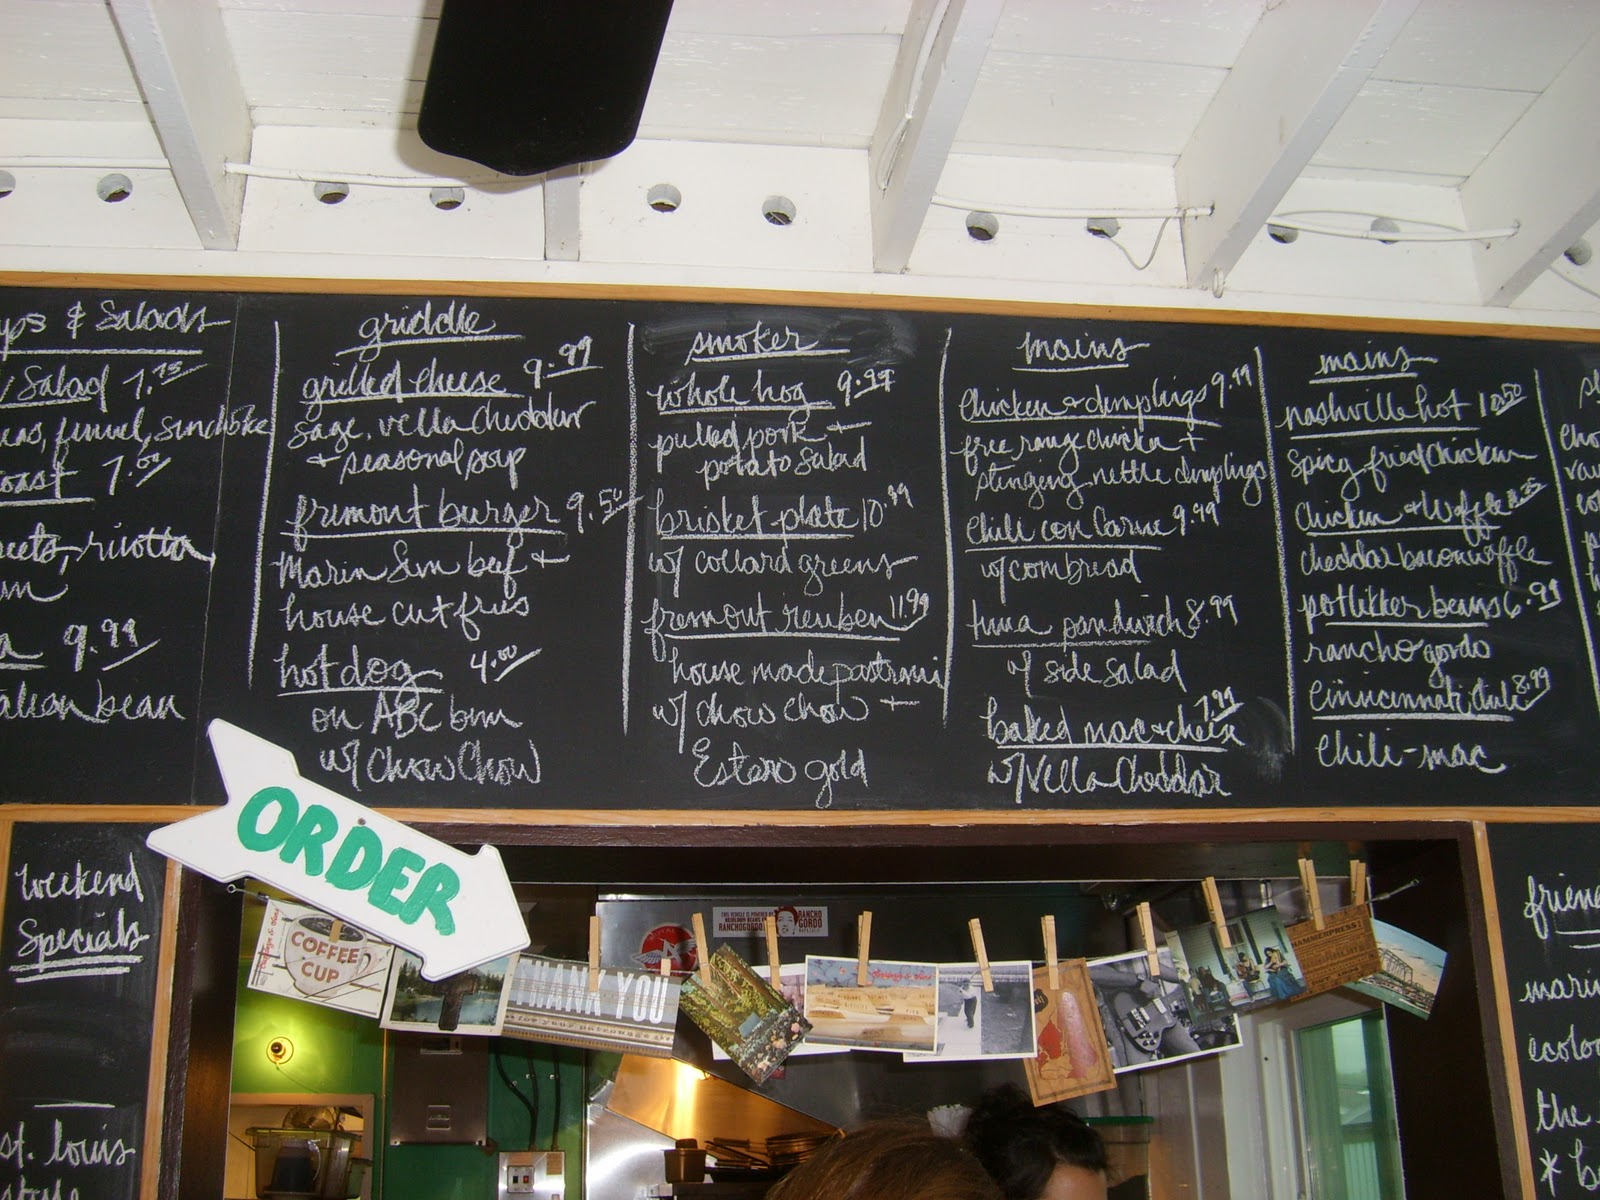 & Salads
Salad 7.75
fennel, sunchoke
7.00
ricotta
9.99
bean
griddle
grilled cheese 9.99
sage, vella cheddar
+ seasonal soup
fremont burger 9.50
Marin Sun beef +
house cut fries
hot dog 4.00
on ABC bun
w/ Chow Chow
smoker
whole hog 9.99
pulled pork +
potato salad
brisket plate 10.99
w/ collard greens
fremont reuben 11.99
house made pastrami
w/ chow chow +
Estero gold
mains
Chicken & dumplings 9.99
free range chicken +
stinging nettle dumplings
Chili con Carne 9.99
w/ cornbread
tuna sandwich 8.99
w/ side salad
baked mac & cheese 7.99
w/ Vella Cheddar
mains
nashville hot 10.50
spicy fried chicken
Chicken & Waffle
cheddar bacon waffle
potlikker beans 6.99
rancho gordo
Cincinnati 8.99
Chili-mac
ORDER
weekend
Specials
st. louis
style
COFFEE
CUP
THANK YOU
for your patronage
RANCHO
GORDO
HAMMERPRESS
the